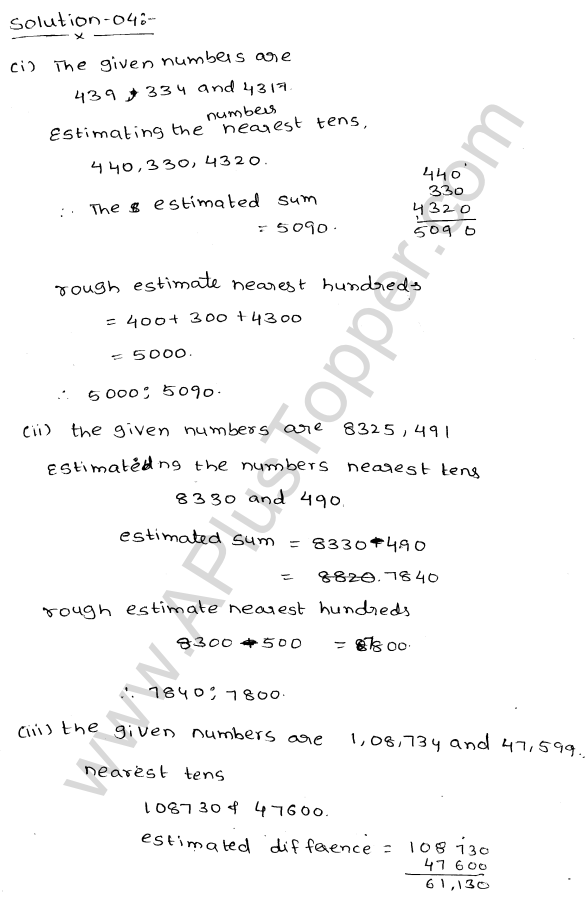 Solution-04:-
(i) The given numbers are
439, 334 and 4317.
Estimating the numbers nearest tens,
440, 330, 4320.
∴ The estimated sum
= 5090.
440
330
4320
5090
rough estimate nearest hundreds
= 400 + 300 + 4300
= 5000.
∴ 5000; 5090.
(ii) the given numbers are 8325, 491
Estimating the numbers nearest tens
8330 and 490.
estimated sum = 8330 - 490
= 8820. 7840
rough estimate nearest hundreds
8300 - 500 = 7800.
∴ 7840; 7800.
(iii) the given numbers are 1,08,734 and 47,599.
nearest tens
108730 & 47600.
estimated diffence = 108730
47600
61,130
www.APlusTopper.com